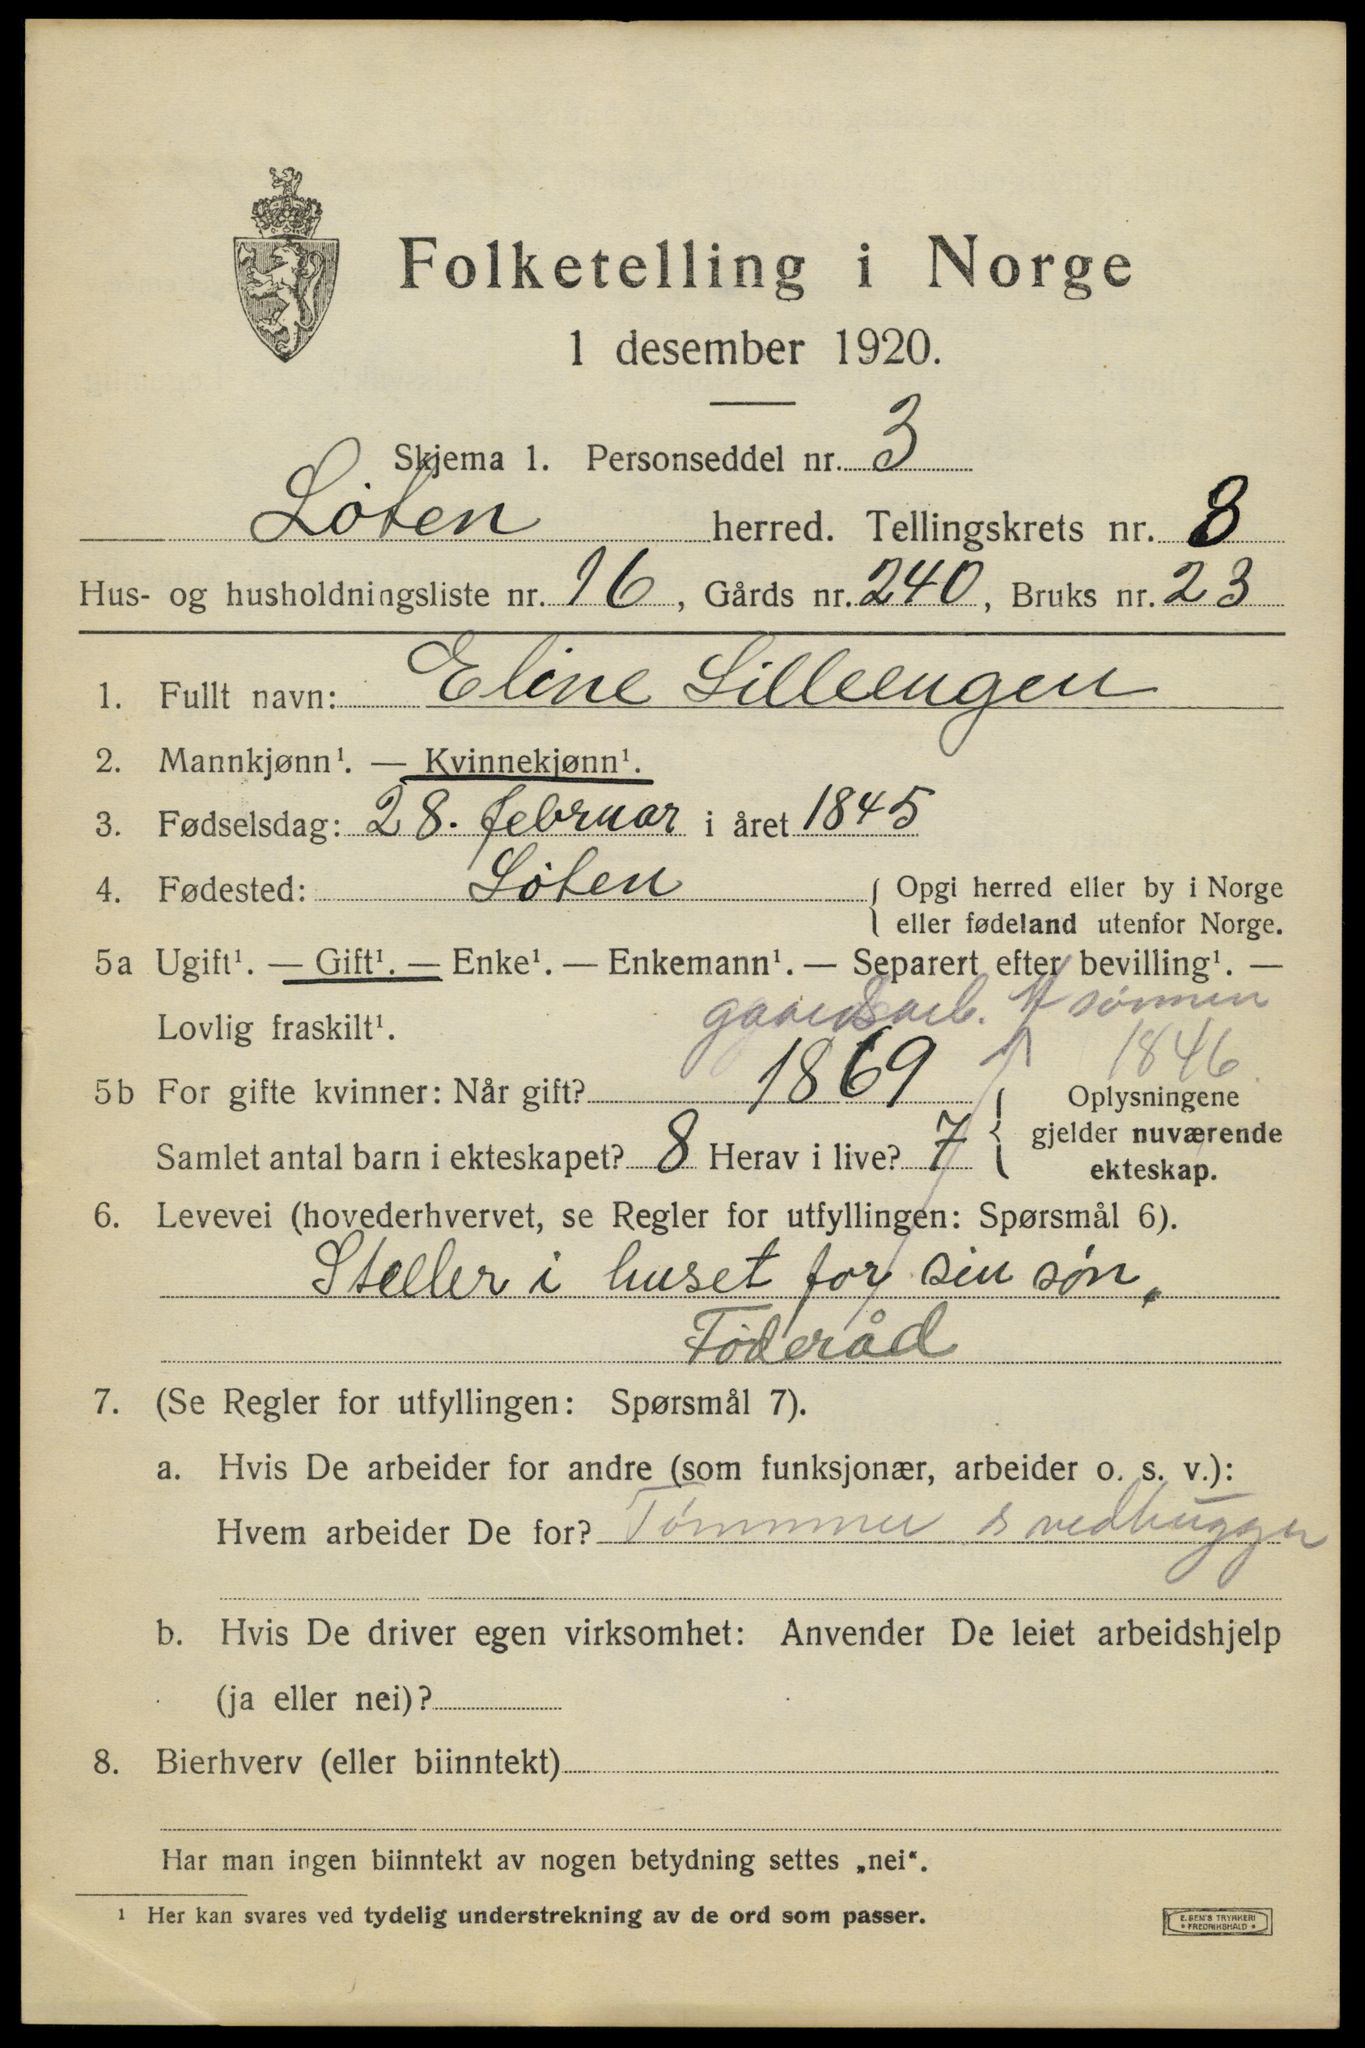 Folketelling i Norge
1 desember 1920.
Skjema 1. Personseddel nr. 3
Löten herred. Tellingskrets nr. 8
Hus- og husholdningsliste nr. 16, Gårds nr. 240, Bruks nr. 23
1. Fullt navn: Eline Lilleengen
2. Mannkjønn¹. — Kvinnekjønn¹.
3. Fødselsdag: 28. februar i året 1845
4. Fødested: Löten { Opgi herred eller by i Norge
eller fødeland utenfor Norge.
5a Ugift¹. — Gift¹. — Enke¹. — Enkemann¹. — Separert efter bevilling¹. —
Lovlig fraskilt¹. gaardsarb. sønnen
1846
5b For gifte kvinner: Når gift? 1869
Samlet antal barn i ekteskapet? 8 Herav i live? 7 { Oplysningene
gjelder nuværende
ekteskap.
6. Levevei (hovederhvervet, se Regler for utfyllingen: Spørsmål 6).
Steller i huset for sin søn.
Föderåd
7. (Se Regler for utfyllingen: Spørsmål 7).
a. Hvis De arbeider for andre (som funksjonær, arbeider o. s. v.):
Hvem arbeider De for? Tømmer & vedhugger
b. Hvis De driver egen virksomhet: Anvender De leiet arbeidshjelp
(ja eller nei)?
8. Bierhverv (eller biinntekt)
Har man ingen biinntekt av nogen betydning settes „nei“.
¹ Her kan svares ved tydelig understrekning av de ord som passer.
E. SEM'S TRYKKERI
• FREDRIKSHALD •